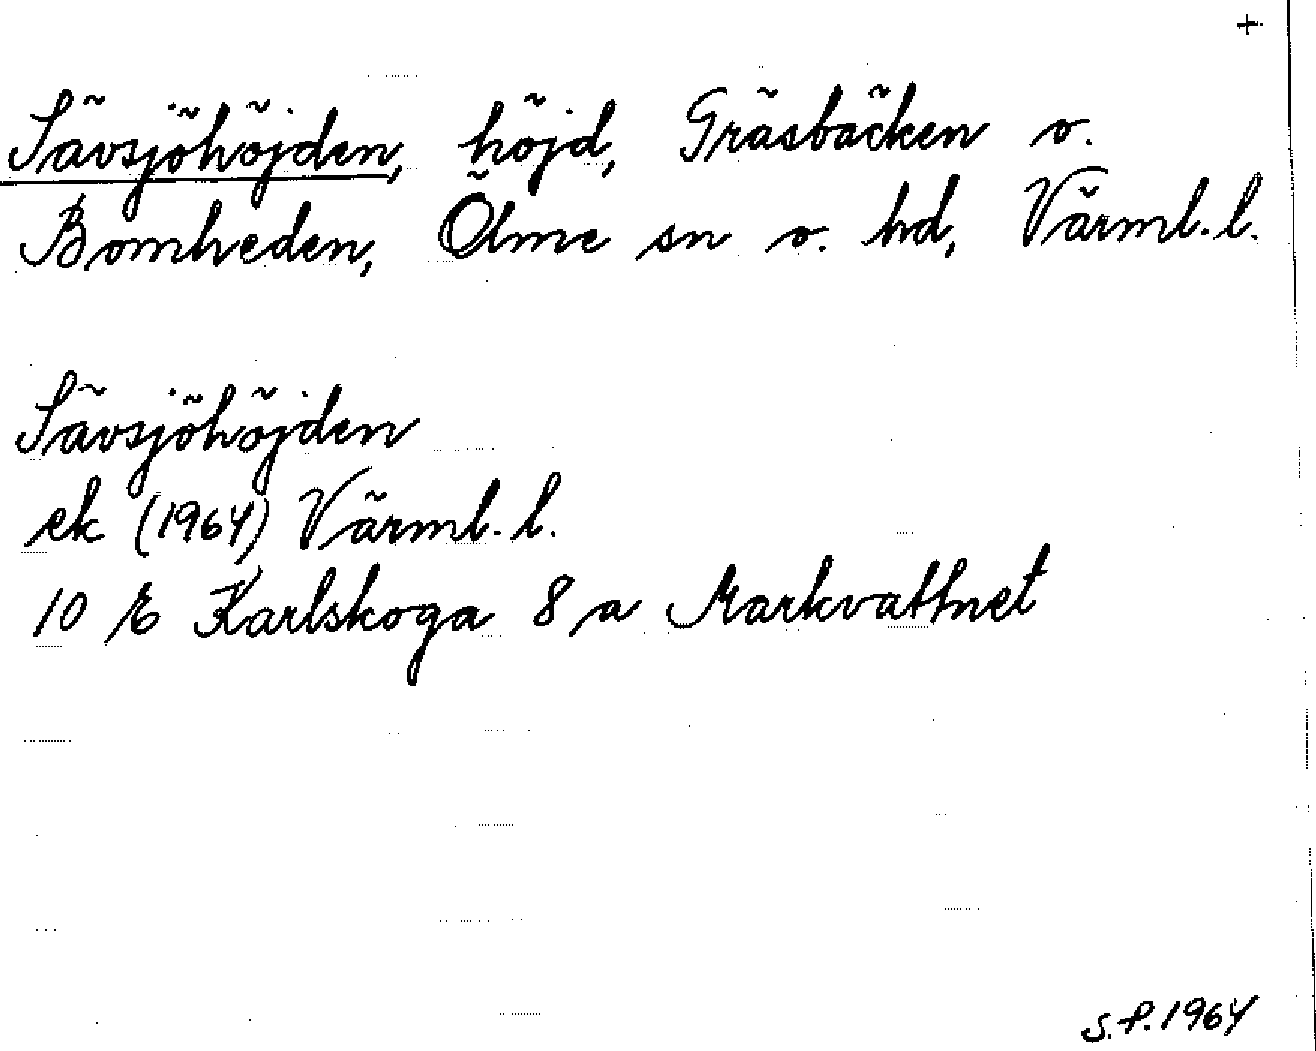 +
Sävsjöhöjden, höjd, Gräsbäcken o.
Bomheden, Ölme sn o. hd, Värml. l.
Sävsjöhöjden
ek (1964) Värml. l.
10 E Karlskoga 8 a Markvattnet
S.P. 1964